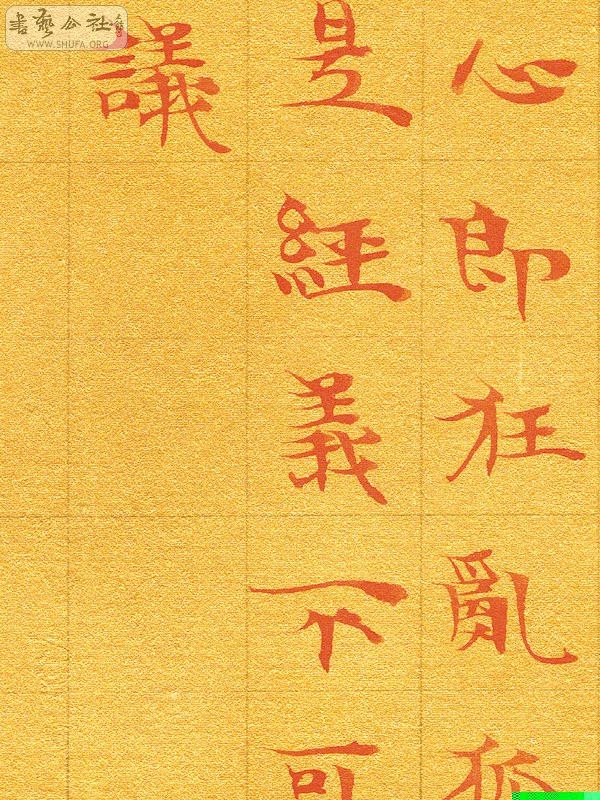 心即狂亂狐
是經義不可
議
書藝公社
WWW.SHUFA.ORG